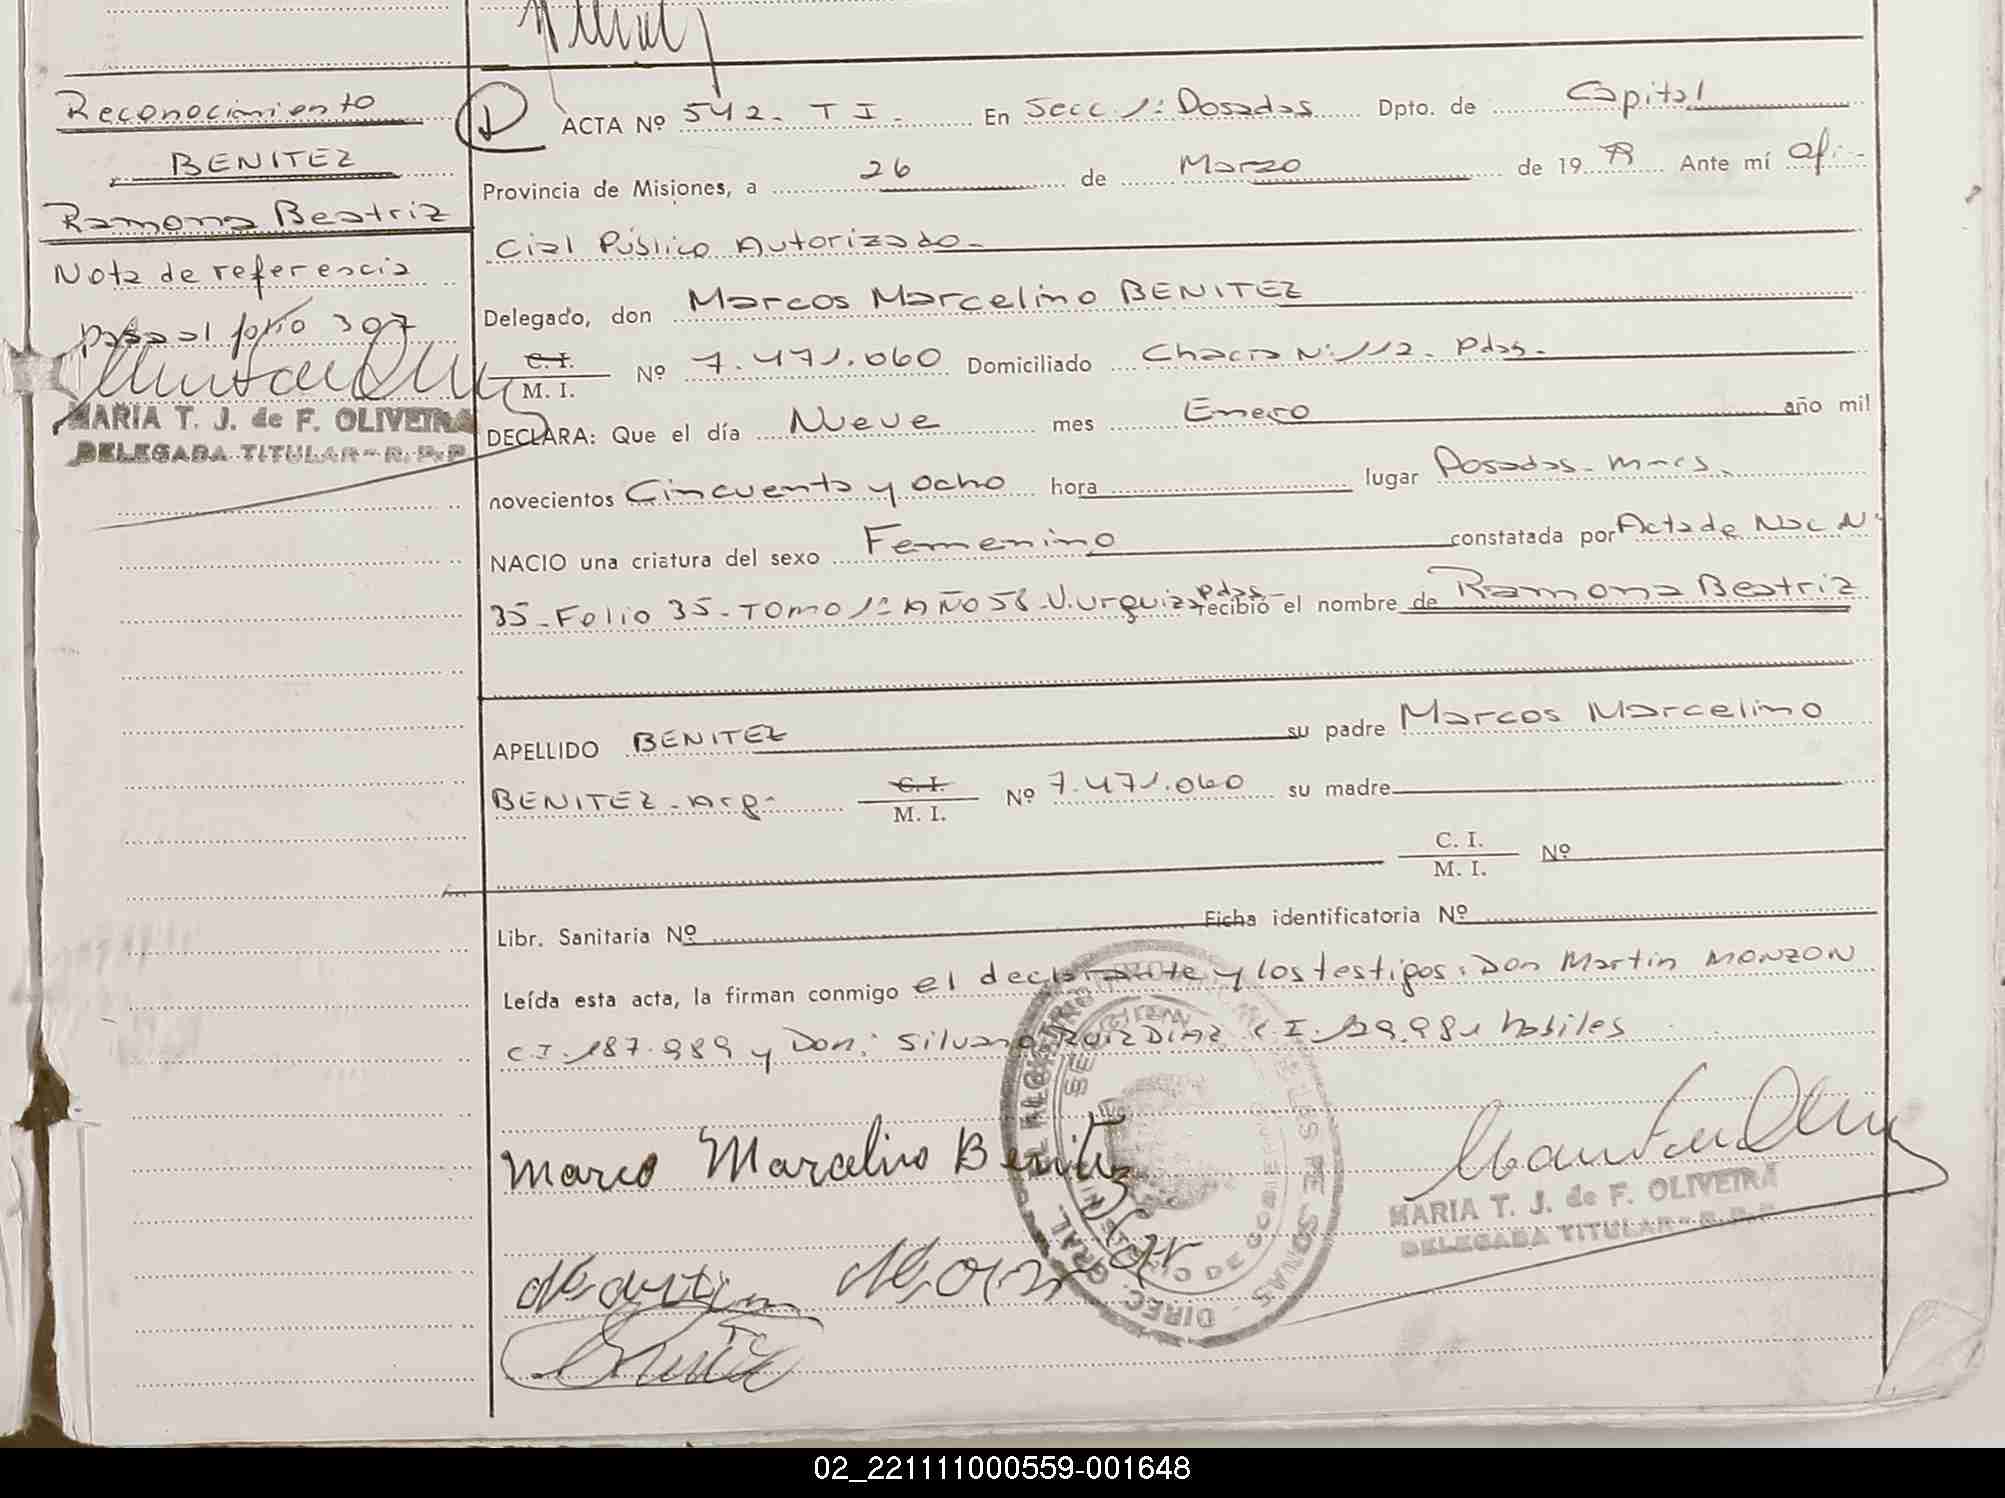 Reconocimiento
BENITEZ
Ramona Beatriz
Nota de referencia
pasa al folio 397
MARIA T. J. de F. OLIVEIRA
DELEGADA TITULAR - R. P. P
ACTA Nº 542. T I. En Secc 1ª Posadas Dpto. de Capital
Provincia de Misiones, a 26 de Marzo de 19 Ante mí Ofi-
cial Público Autorizado.
Delegado, don Marcos Marcelino BENITEZ
C. I.
M. I. Nº 7.471.060 Domiciliado Chacra Nº 112. Pdas.
DECLARA: Que el día Nueve mes Enero año mil
novecientos Cincuenta y Ocho hora lugar Posadas. Mnes.
NACIO una criatura del sexo Femenino constatada por Acta de Nac Nº
35-Folio 35-TOMO 1º AÑO 58-V. Urquiza Pdas- recibió el nombre de Ramona Beatriz
APELLIDO BENITEZ su padre Marcos Marcelino
BENITEZ - Arg- C. I. M. I. Nº 7.471.060 su madre
C. I.
M. I. Nº
Libr. Sanitaria Nº Ficha identificatoria Nº
Leída esta acta, la firman conmigo el declarante y los testigos: Don Martin MONZON
C.I. 187.989 y Don: Silvano RUIZ DIAZ C.I. hábiles
Marco Marcelino Benitez
Martin Monzon
MARIA T. J. de F. OLIVEIRA
DELEGADA TITULAR - R. P. P
02_221111000559-001648